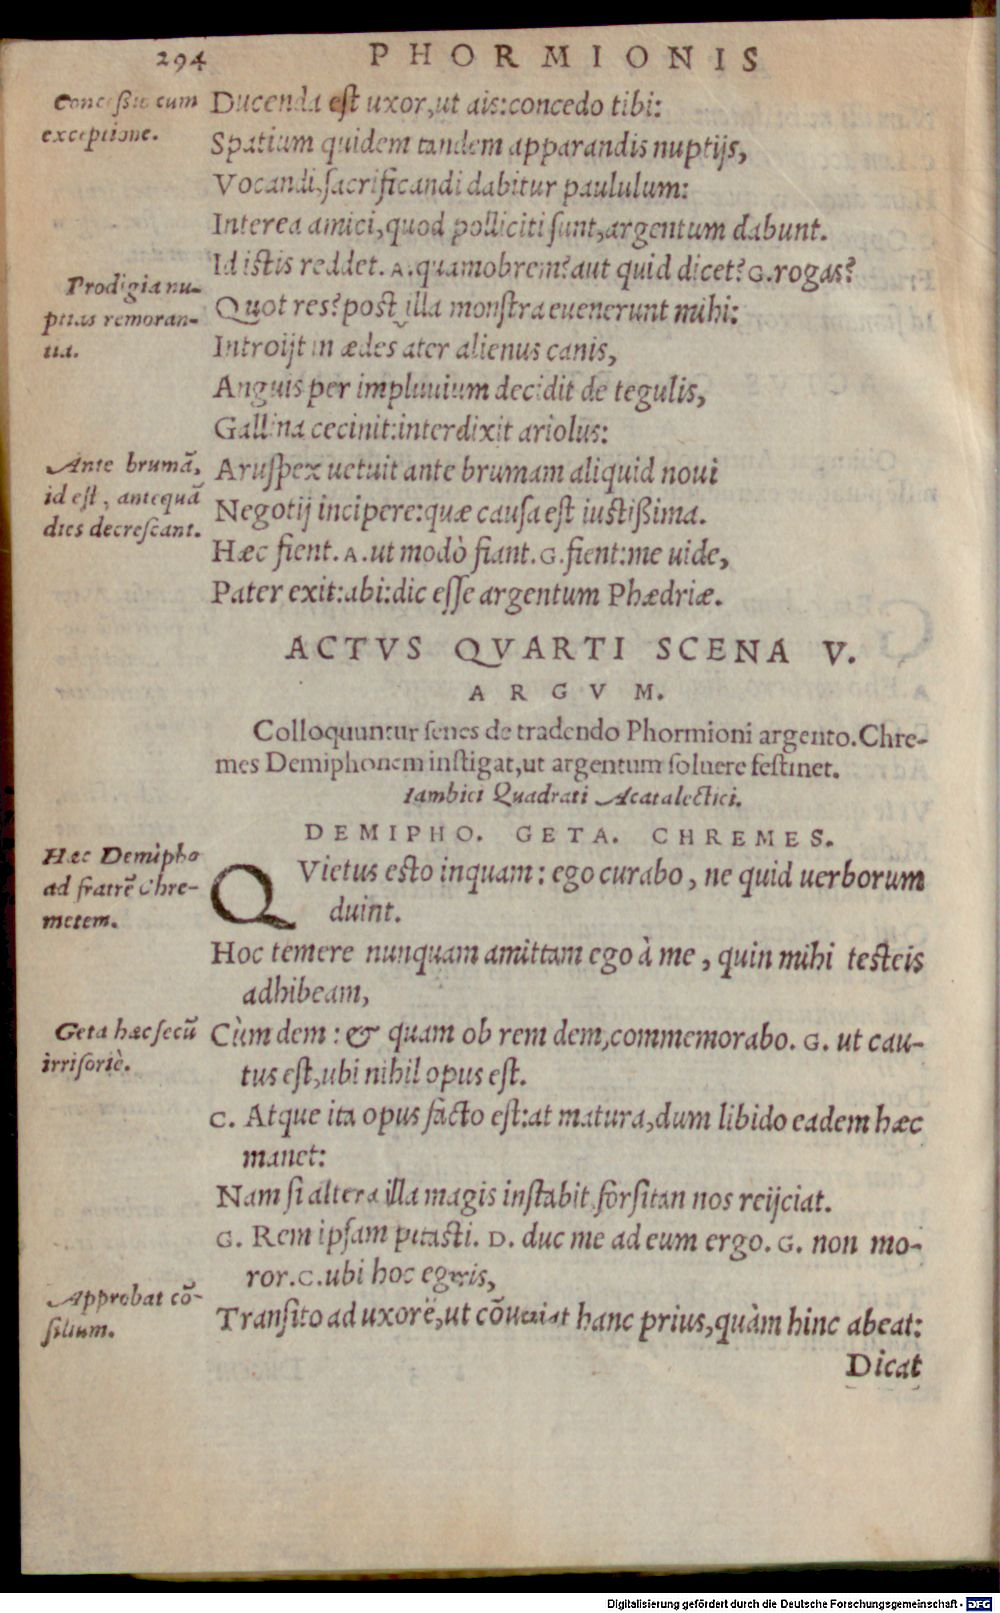 294 PHORMIONIS
Concessio cum
exceptione.
Ducenda est uxor, ut ais: concedo tibi:
Spatium quidem tandem apparandis nuptijs,
Vocandi, sacrificandi dabitur paululum:
Interea amici, quod polliciti sunt, argentum dabunt.
Id istis reddet. A. quamobrem? aut quid dicet? G. rogas?
Prodigia nu-
ptias remoran-
tia.
Quot res? post illa monstra euenerunt mihi:
Introijt in ædes ater alienus canis,
Anguis per impluuium decidit de tegulis,
Gallina cecinit: interdixit ariolus:
Ante brumā,
id est, antequā
dies decrescant.
Aruspex uetuit ante brumam aliquid noui
Negotij incipere: quæ causa est iustißima.
Hæc fient. A. ut modò fiant. G. fient: me uide,
Pater exit: abi: dic esse argentum Phædriæ.
ACTVS QVARTI SCENA V.
ARGVM.
Colloquuntur senes de tradendo Phormioni argento. Chre-
mes Demiphonem instigat, ut argentum soluere festinet.
Iambici Quadrati Acatalectici.
DEMIPHO. GETA. CHREMES.
Hæc Demipho
ad fratrē Chre-
metem.
QVietus esto inquam: ego curabo, ne quid uerborum
duint.
Hoc temere nunquam amittam ego à me, quin mihi testeis
adhibeam,
Geta hæc secū
irrisoriè.
Cùm dem: & quam ob rem dem, commemorabo. G. ut cau-
tus est, ubi nihil opus est.
C. Atque ita opus facto est: at matura, dum libido eadem hæc
manet:
Nam si altera illa magis instabit, forsitan nos reijciat.
G. Rem ipsam putasti. D. duc me ad eum ergo. G. non mo-
ror. C. ubi hoc egeris,
Approbat cō-
silium.
Transito ad uxorē, ut cōueniat hanc prius, quàm hinc abeat:
Dicat
Digitalisierung gefördert durch die Deutsche Forschungsgemeinschaft - DFG